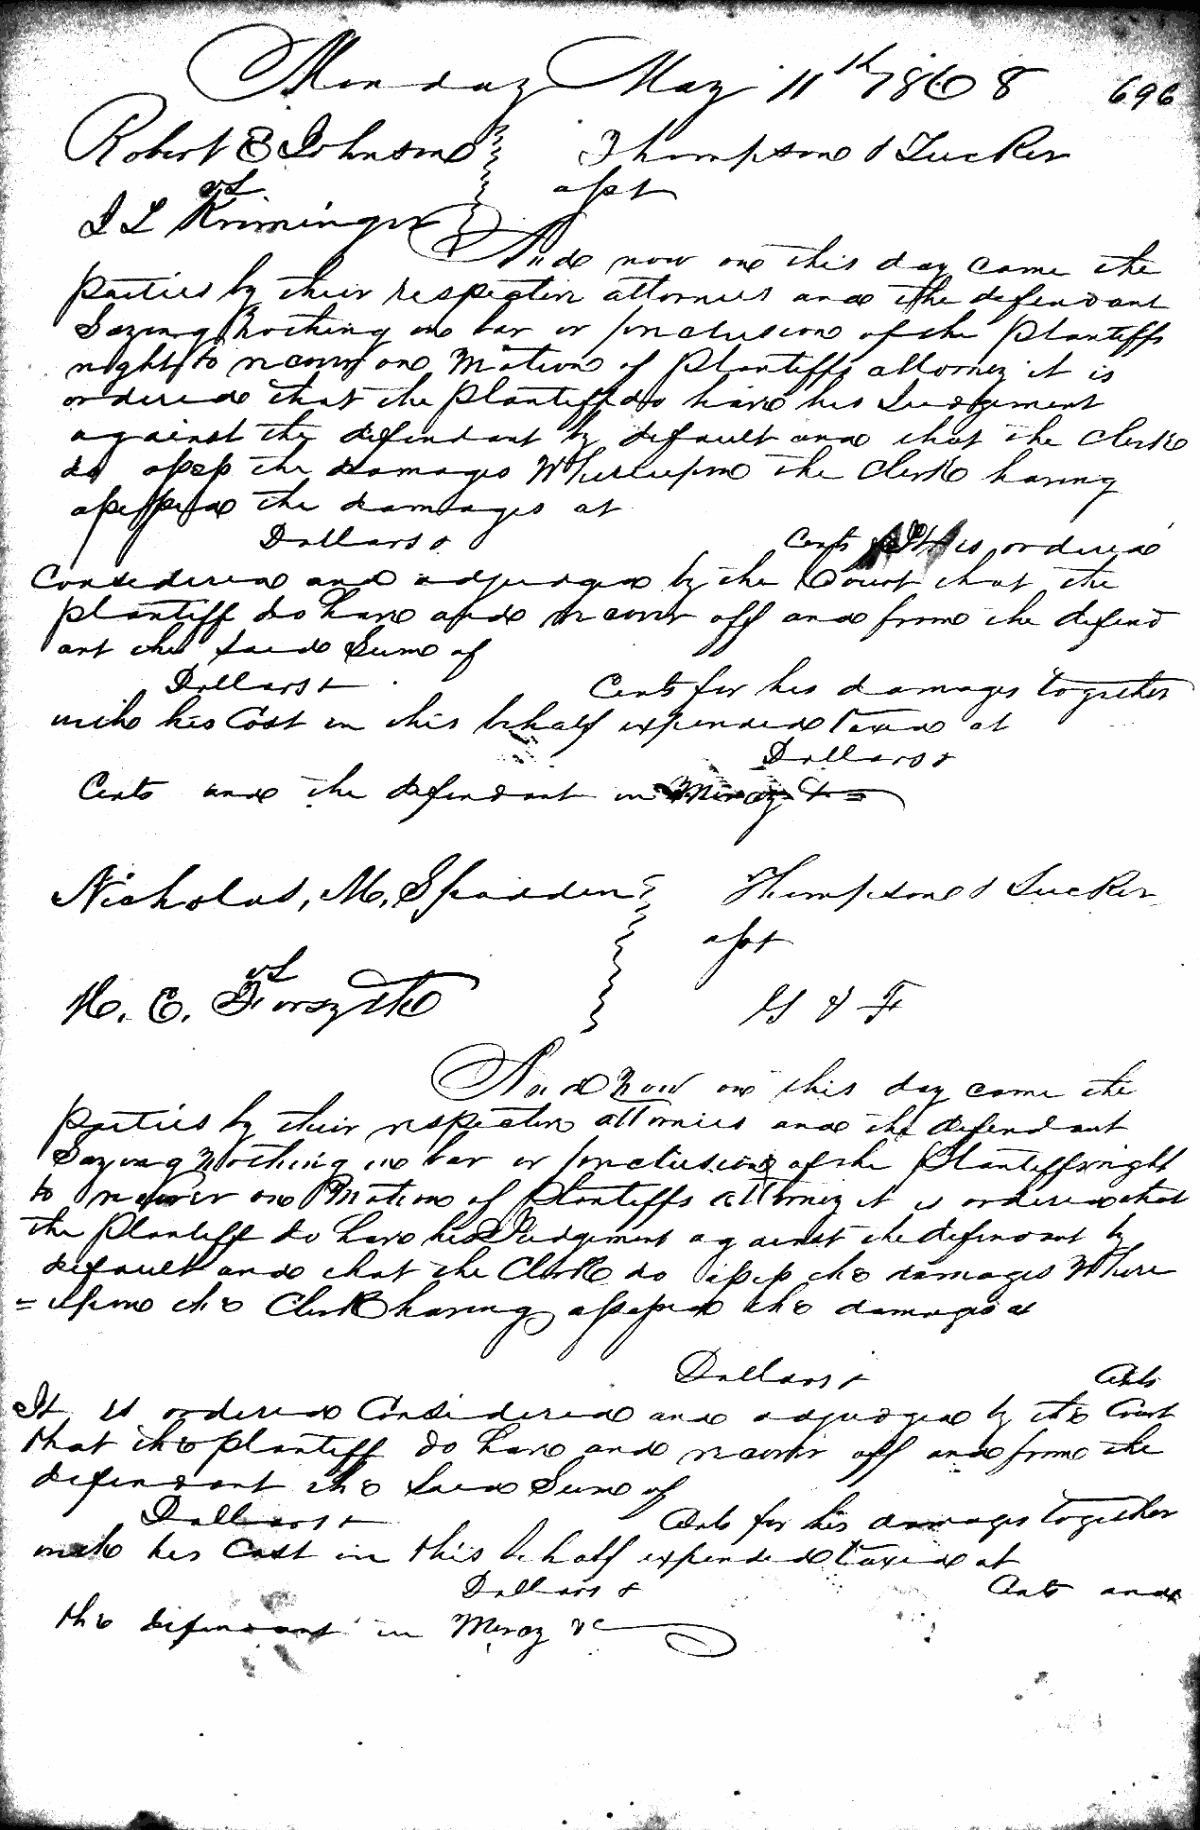 Monday May 11th 1868 696
Robert E Johnson Thompson & Tucker
vs asst
I L Kriminger
And now on this day came the
parties by their respective attornies and the defendant
Saying Nothing in bar or preclusion of the Plantiffs
right to recover on Motion of Plantiffs attorney it is
ordered that the Plantiff do have his Judgement
against the defendant by default and that the Clerk
do assess the damages Whereupon the Clerk having
assessed the damages at
Dollars & Cents It is ordered
Considered and adjudged by the Court that the
plantiff do have and recover off and from the defend
ant the said Sum of
Dollars & Cents for his damages together
with his Cost in this behalf expended taxed at
Dollars &
Cents and the defendant in Mercy &c
Nicholas, M, Spadden Thompson & Tucker
asst
vs
H. E. Forsythe G & F
And Now on this day came the
parties by their respective attornies and the defendant
Saying Nothing in bar or preclusion of the Plantiffs right
to recover on Motion of Plantiffs attorney it is ordered that
the Plantiff do have his Judgement against the defendant by
default and that the Clerk do assess the damages Where
=upon the Clerk having assessed the damages at
Dollars & Cents
It is ordered Considered and adjudged by the Court
that the plantiff do have and recover off and from the
defendant the said Sum of
Dollars & Cents for his damages together
with his Cost in this behalf expended taxed at
Dollars & Cents and
the defendant in Mercy &c